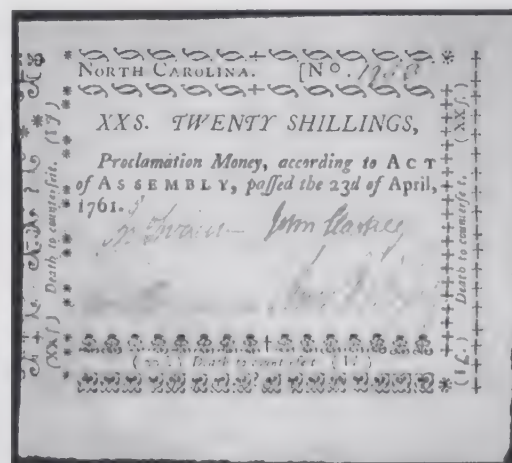 NORTH CAROLINA. [No.
XXS. TWENTY SHILLINGS,
Proclamation Money, according to ACT
of ASSEMBLY, passed the 23d of April,
1761.
John Starkey
Death to counterfeit.
(XXs.)
Death to counterfeit.
(XXs.)
Death to counterfeit.